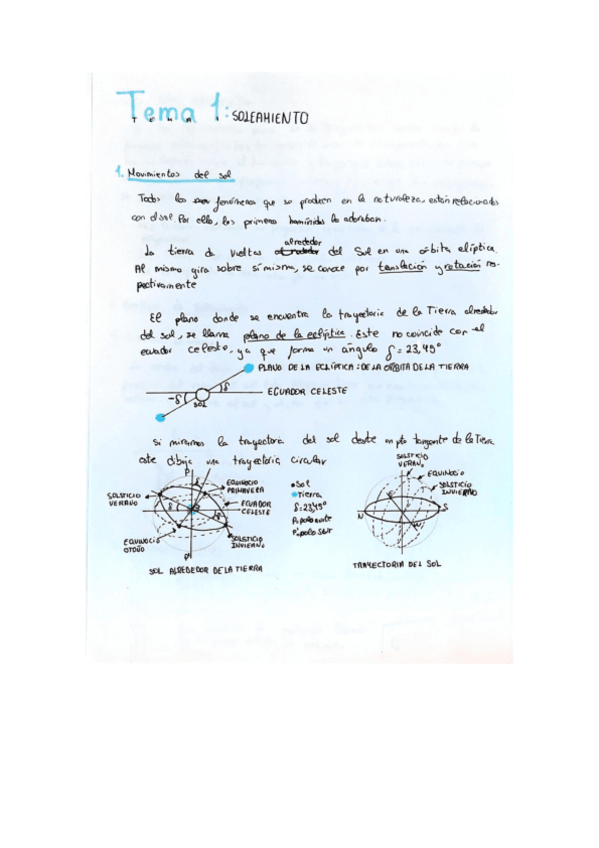 Tema 1: SOLEAMIENTO
TEMA 1
1. Movimientos del sol
Todos los fenómenos que se producen en la naturaleza, están relacionados
con el sol. Por ello, los primeros homínidos lo adoraban.
alrededor
La tierra da vueltas del Sol en una orbita elíptica.
Al mismo gira sobre sí misma, se conoce por translación y rotación res-
pectivamente
El plano donde se encuentra la trayectoria de la Tierra alrededor
del sol, se llama plano de la eclíptica. Este no coincide con el
ecuador celeste, ya que forma un ángulo δ = 23,45°
PLANO DE LA ECLÍPTICA: DE LA ORBITA DE LA TIERRA
δ
-δ
SOL
ECUADOR CELESTE
Si miramos la trayectoria del sol desde un pto tangente de la Tierra
este dibuja una trayectoria circular
SOLSTICIO
VERANO
EQUINOCIO
SOLSTICIO
INVIERNO
P
EQUINOCIO
PRIMAVERA
SOLSTICIO
VERANO
ECUADOR
CELESTE
EQUINOCIO
OTOÑO
SOLSTICIO
INVIERNO
P'
Sol
Tierra
δ: 23,45°
P: polo norte
P': polo sur
N
S
E
SOL ALREDEDOR DE LA TIERRA
TRAYECTORIA DEL SOL